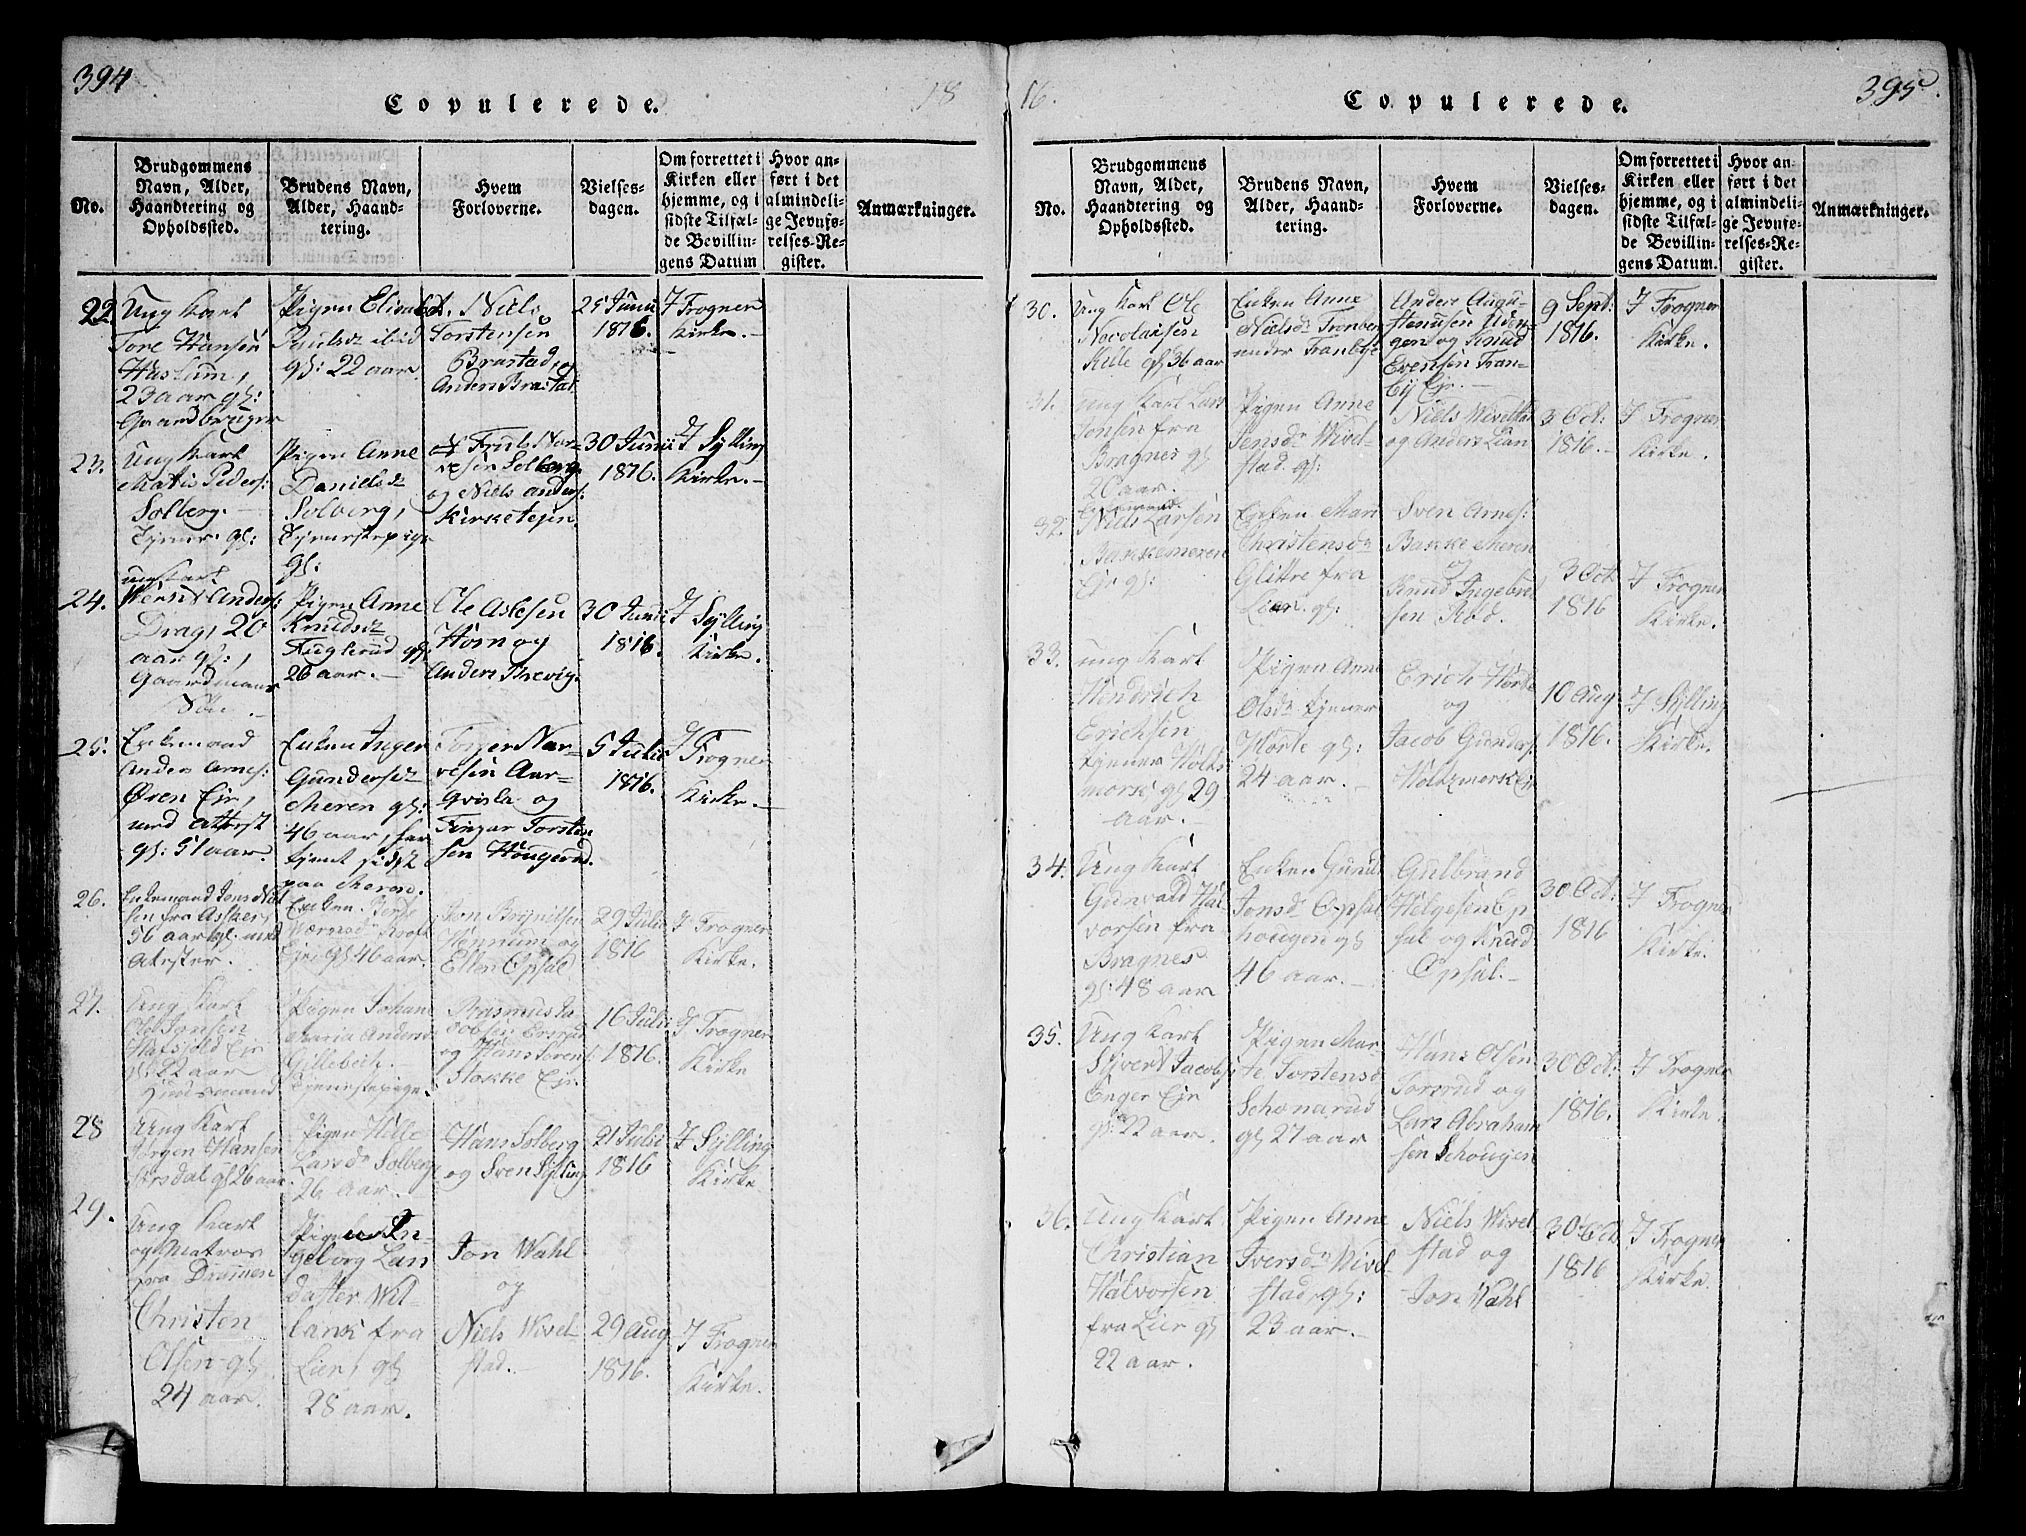 394
Copulerede.
18
No.
Brudgommens
Navn, Alder,
Haandtering og
Opholdssted.
Brudens Navn,
Alder, Haand-
tering.
Hvem
Forloverne.
Vielses-
dagen.
Om forrettet i
Kirken eller
hjemme, og i
sidste Tilfæl-
de Bevillin-
gens Datum
Hvor an-
ført i det
almindeli-
ge Jevnfø-
relses-Re-
gister.
Anmærkninger.
22.
Ung Karl
Tore Hansen
Haslum,
23 aar gl:
Gaardbruger
Pigen Elisabet
Paulsdr ibid
gl: 22 aar.
Niels
Torstensen
Brastad,
Anders Brastad.
25 Junii
1816.
I Frogner
Kirke.
23.
Ung Karl
Matis Peders:
Solberg.
Tjener gl:
Pigen Anne
Danielsdr
Solberg,
Tjenestepige
gl:
Solberg
og Niels Anders:
Kirketejen.
30 Junii
1816.
I Sylling
Kirke.
24.
Anders:
Drag, 20
aar gl:,
Gaardmans
Pigen Anne
Knudsdr
Fuglerud gl:
26 aar.
Ole Aslesen
Horn og
Anders Brevig.
30 Junii
1816.
I Sylling
Kirke.
25.
Enkemand
Anders Arnes:
Øren Eje,
med Attest
gl: 51 aar.
Enken Inger
Gundersdr
Meren gl:
46 aar, har
tjent sidst
paa Meren.
Torger Nar-
vesen Aar-
qvisla og
Finger Torsten
sen Hougerud.
5 Julii
1816.
I Frogner
Kirke.
26.
Enkemand Jens
sen fra Asker,
56 aar gl. med
Atester.
Enken Berte
Eje gl 46 aar.
Jon Brynilsen
Hennum og
Ellen Opsal
29 Julii
1816
I Frogner
Kirke.
27.
Ung Karl
Ole Jonsen
Eje
gl 22 aar
Huusmand
Pigen Johane
Maria Anders
Gillebech
Tjenestepige.
Rasmus Ja
cobsen
og Hans Sorens:
Stokke Eje
16 Julii
1816.
I Frogner
Kirke
28
Ung Karl
Jørgen Hansen
gl 26 aar.
Pigen Helle
Larsdr Solberg
26 aar.
Hans Solberg
og Sven Sylling
21 Julii
1816
I Sylling
Kirke
29.
Ung Karl
og Matros
fra Drammen
Christen
Olsen gl
24 aar.
Pigen In-
geborg Lan
fra
Lier, gl
28 aar.
Jon Wahl
og
Niels Wivel-
stad.
29 Aug
1816.
I Frogner
Kirke.
16.
Copulerede.
395.
No.
Brudgommens
Navn, Alder,
Haandtering og
Opholdssted.
Brudens Navn,
Alder, Haand-
tering.
Hvem
Forloverne.
Vielses-
dagen.
Om forrettet i
Kirken eller
hjemme, og i
sidste Tilfæl-
de Bevillin-
gens Datum.
Hvor an-
ført i det
almindeli-
ge Jevnfø-
relses-Re-
gister.
Anmærkninger.
30.
Ung Karl Ole
Nocolaisen
gl 36 aar
Enken Anne
Nielsdr
under Tranbye
Anders Augu-
stenusen
gen og Knud
Evensen Tran-
by Eje.
9 Sept:
1816.
I Frogner
Kirke.
31.
Ung Karl Lars
Jonsen fra
Bragnes gl
20 aar.
Pigen Anne
Jensdr Wivel-
stad gl:
Niels Wivelstad
og Anders Lian
3 Oct:
1816.
I Frogner
Kirke.
32.
Enkemand
Niels Larsen
Bakkemeren
Eje gl:
Enken Mari
Christensdr
Glitre fra
Lier gl:
Sven Arnes:
Bakke Meren
Knud Ingebret
sen
3 Oct
1816
I Frogner
Kirke.
33.
Ung Karl
Hendrich
Erichsen
tjener Holts
mork gl 29
aar.
Pigen Anne
Olsdr tjener
Horte gl:
24 aar.
Erich Horte
og
Jacob Gunders:
Holtzmork Eje
10 Aug
1816.
I Sylling
Kirke.
34.
Ung Karl
Gunvald Hal-
vorsen fra
Bragnes
gl: 48 aar
Enken Gunild
Jonsdr Opsal
hougen gl
46 aar.
Gulbrand
Helgesen Op
sal og Knud
Opsal.
30 Oct:
1816
I Frogner
Kirke.
35.
Ung Karl
Syvert Jacobs
Enger Eje
gl: 22 aar.
Pigen Mar-
te Torstensd
Schonarud
gl 27 aar
Hans Olsen
Torsrud og
Lars Abraham
sen Schougen
30 Oct:
1816.
I Frogner
Kirke.
36.
Ung Karl
Christian
Halvorsen
fra Lier gl
22 aar.
Pigen Anne
Iversdr Wivel-
stad, gl:
23 aar.
Niels Wivel
stad og
Jon Wahl
30 Oct
1816
I Frogner
Kirke.